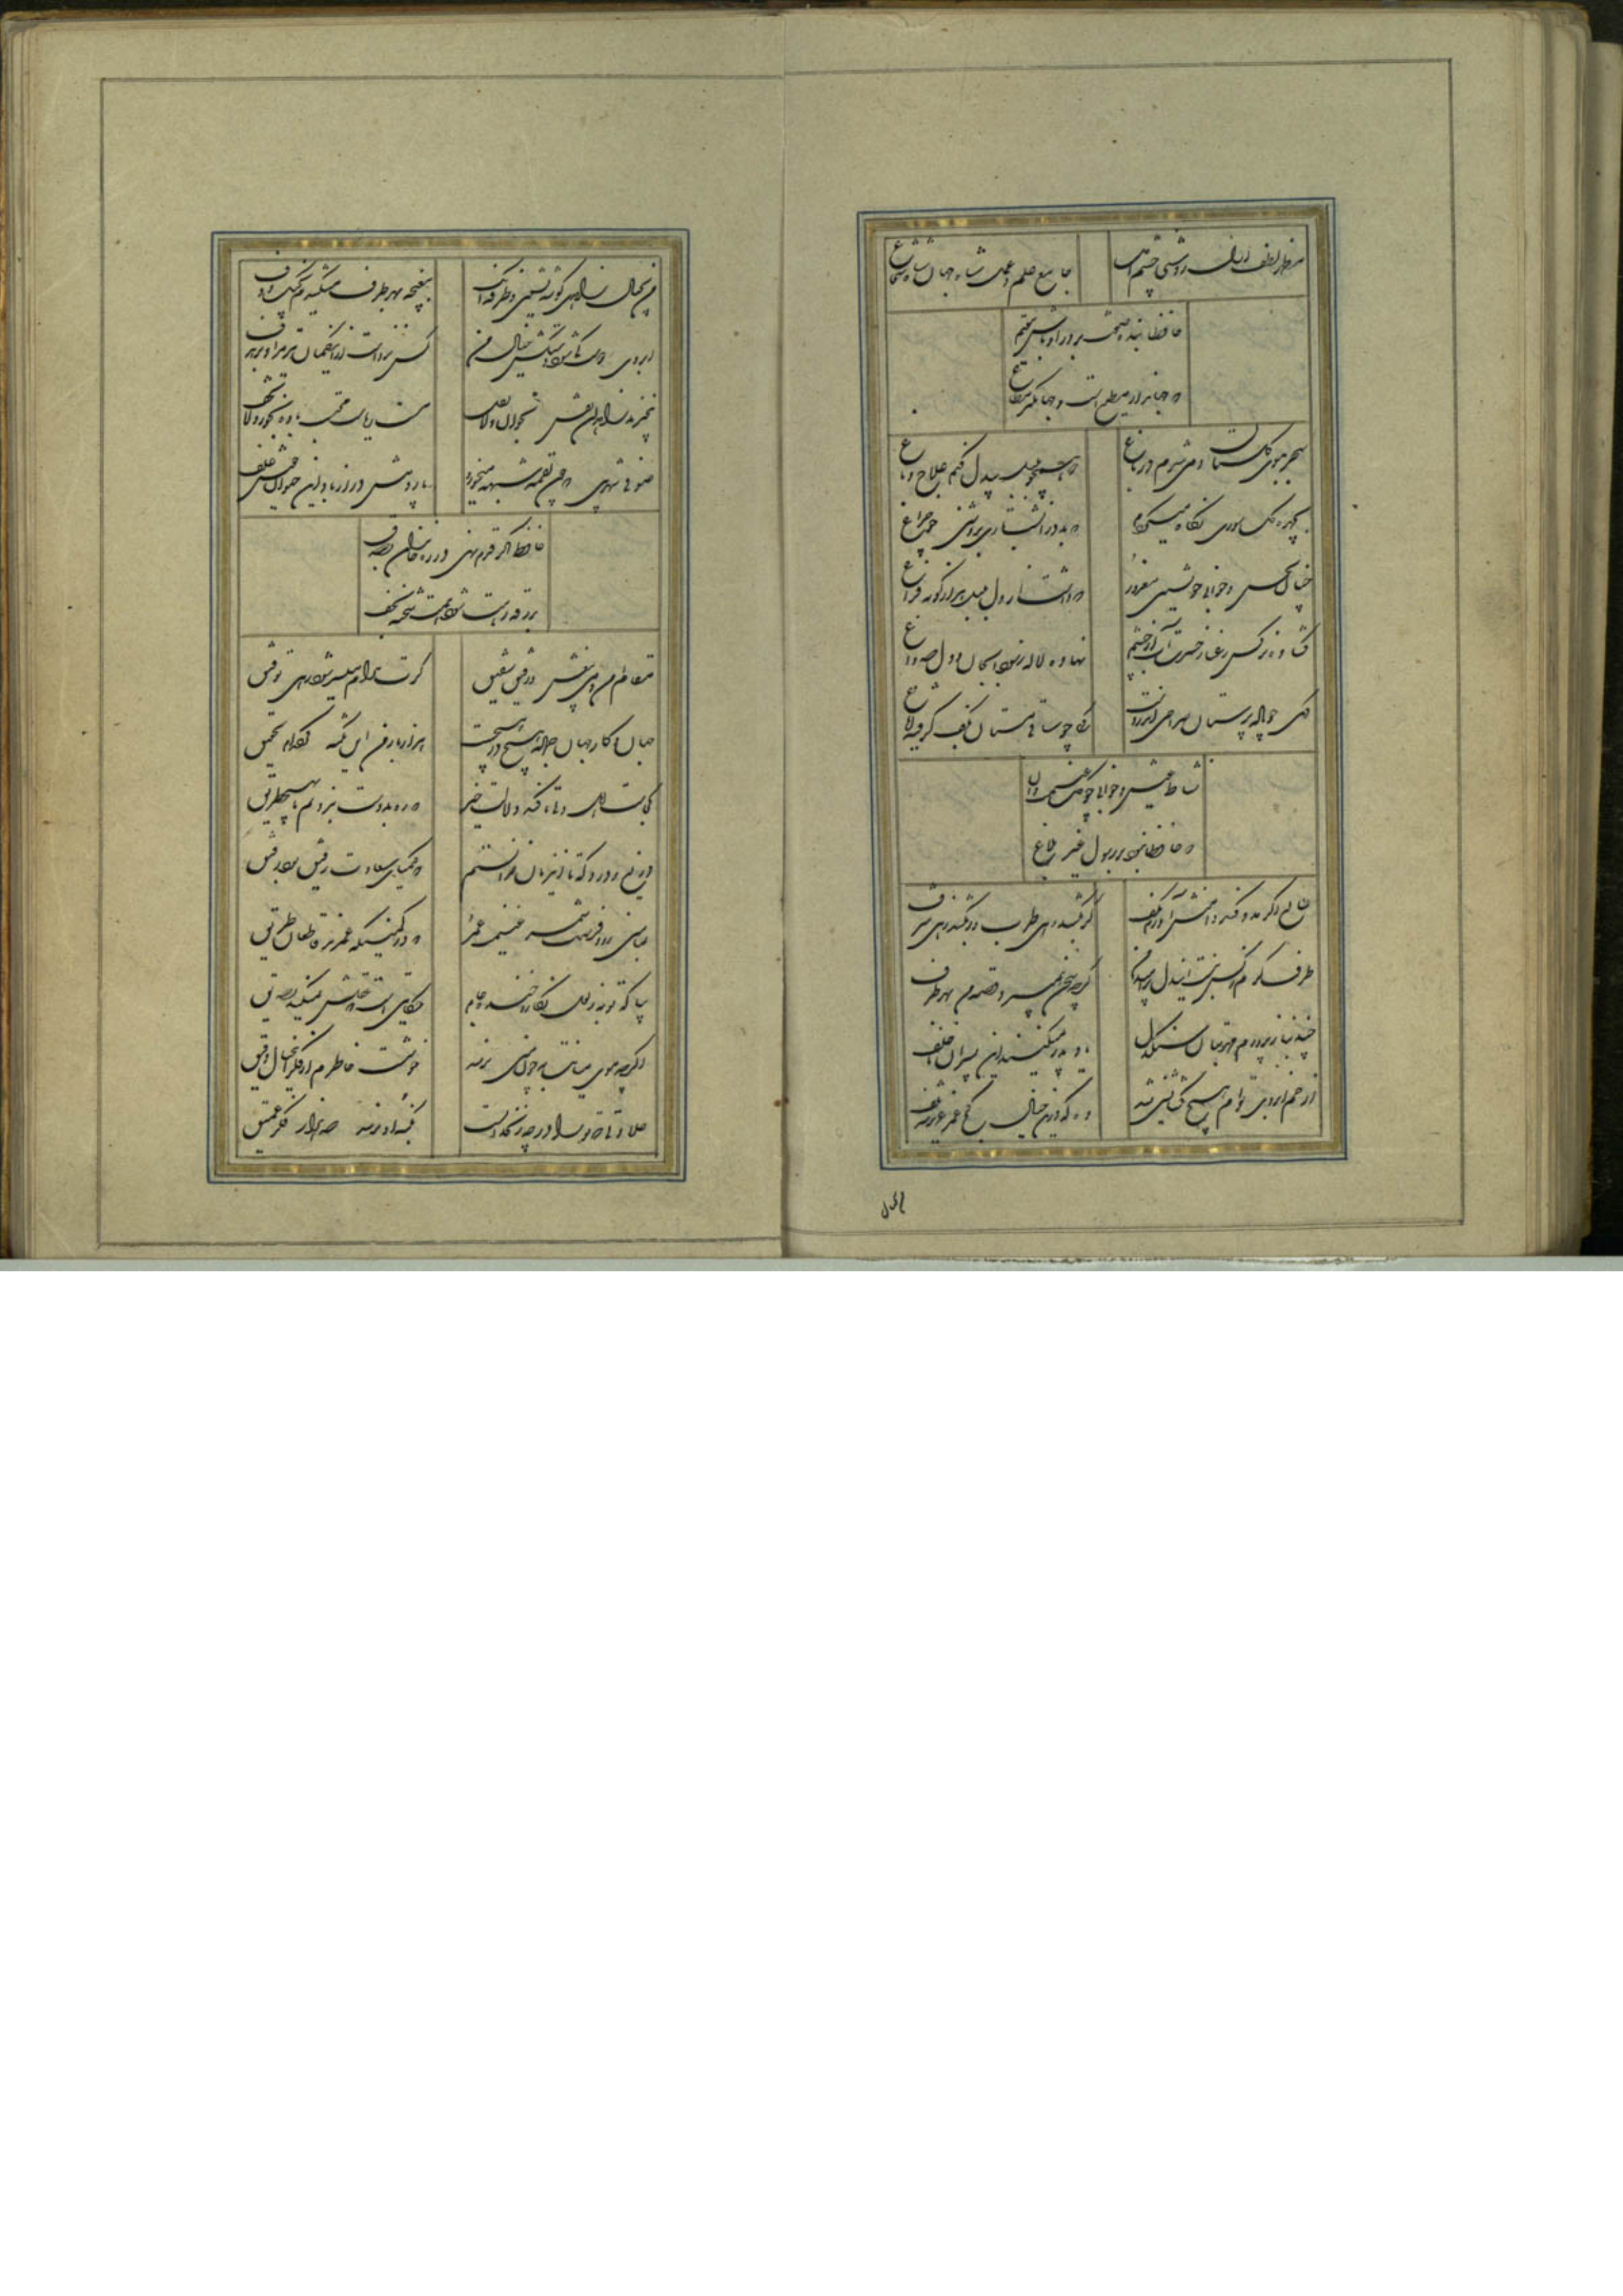 مظهر لطف ازل روشنی چشم امل جامع علم و عمل شاه جهان شاه شجاع
حافظا بنده صفت بر در او باش مقیم
که جهاندار مطیع است و جهانگیر مطاع
سحر ببوی گلستان دمی شدم در باغ که همچو بلبل بیدل کنم علاج دماغ
بچهره گل سوری نگاه میکردم که بود در شب تاری بروشنی چو چراغ
چنان بحسن و جوانی خویشتن مغرور که داشت از دل بلبل هزار گونه فراغ
گشاده نرگس رعنا ز حسرت آب از چشم نهاده لاله ز سودا بجان و دل صد داغ
یکی چو باده پرستان صراحی اندر دست یکی چو ساقی مستان بکف گرفته ایاغ
نشاط عیش و جوانی چو گل غنیمت دان
که حافظا نبود بر رسول غیر بلاغ
طالع اگر مدد کند دامنش آورم بکف گر بکشم زهی طرب ور بکشد زهی شرف
طرف کرم ز کس نبست این دل پر امید من گرچه سخن همی برد قصه من بهر طرف
چند بناز پرورم مهر بتان سنگدل یاد پدر نمیکنند این پسران ناخلف
از خم ابروی توام هیچ گشایشی نشد وه که درین خیال کج عمر عزیز شد تلف
من بخیال زاهدی گوشه نشین و طرفه آنک مغبچه بهر طرف میزندم بچنگ و دف
ابروی دوست کی شود دستکش خیال من کس نزدست ازین کمان تیر مراد بر هدف
بیخبرند زاهدان نقش بخوان ولاتقل مست ریاست محتسب باده بخور ولاتخف
صوفی شهر بین که چون لقمه شبهه میخورد پاردمش دراز باد این حیوان خوش علف
حافظ اگر قدم نهی در ره خاندان بصدق
بدرقه رهت شود همت شحنه نجف
مقام امن و می بیغش و رفیق شفیق گرت مدام میسر شود زهی توفیق
جهان و کار جهان جمله هیچ در هیچست هزار بار من این نکته کرده ام تحقیق
دریغ و درد که تا این زمان ندانستم که کیمیای سعادت رفیق بود رفیق
بمأمنی رو و فرصت شمر غنیمت عمر که در کمینگه عمرند قاطعان طریق
بیا که توبه ز لعل نگار و خنده جام حکایتی است که عقلش نمیکند تصدیق
اگرچه موی میانت بچون منی نرسد خوشست خاطرم از فکر این خیال دقیق
حلاوتی که ترا در چه زنخدانست بکنه او نرسد صد هزار فکر عمیق